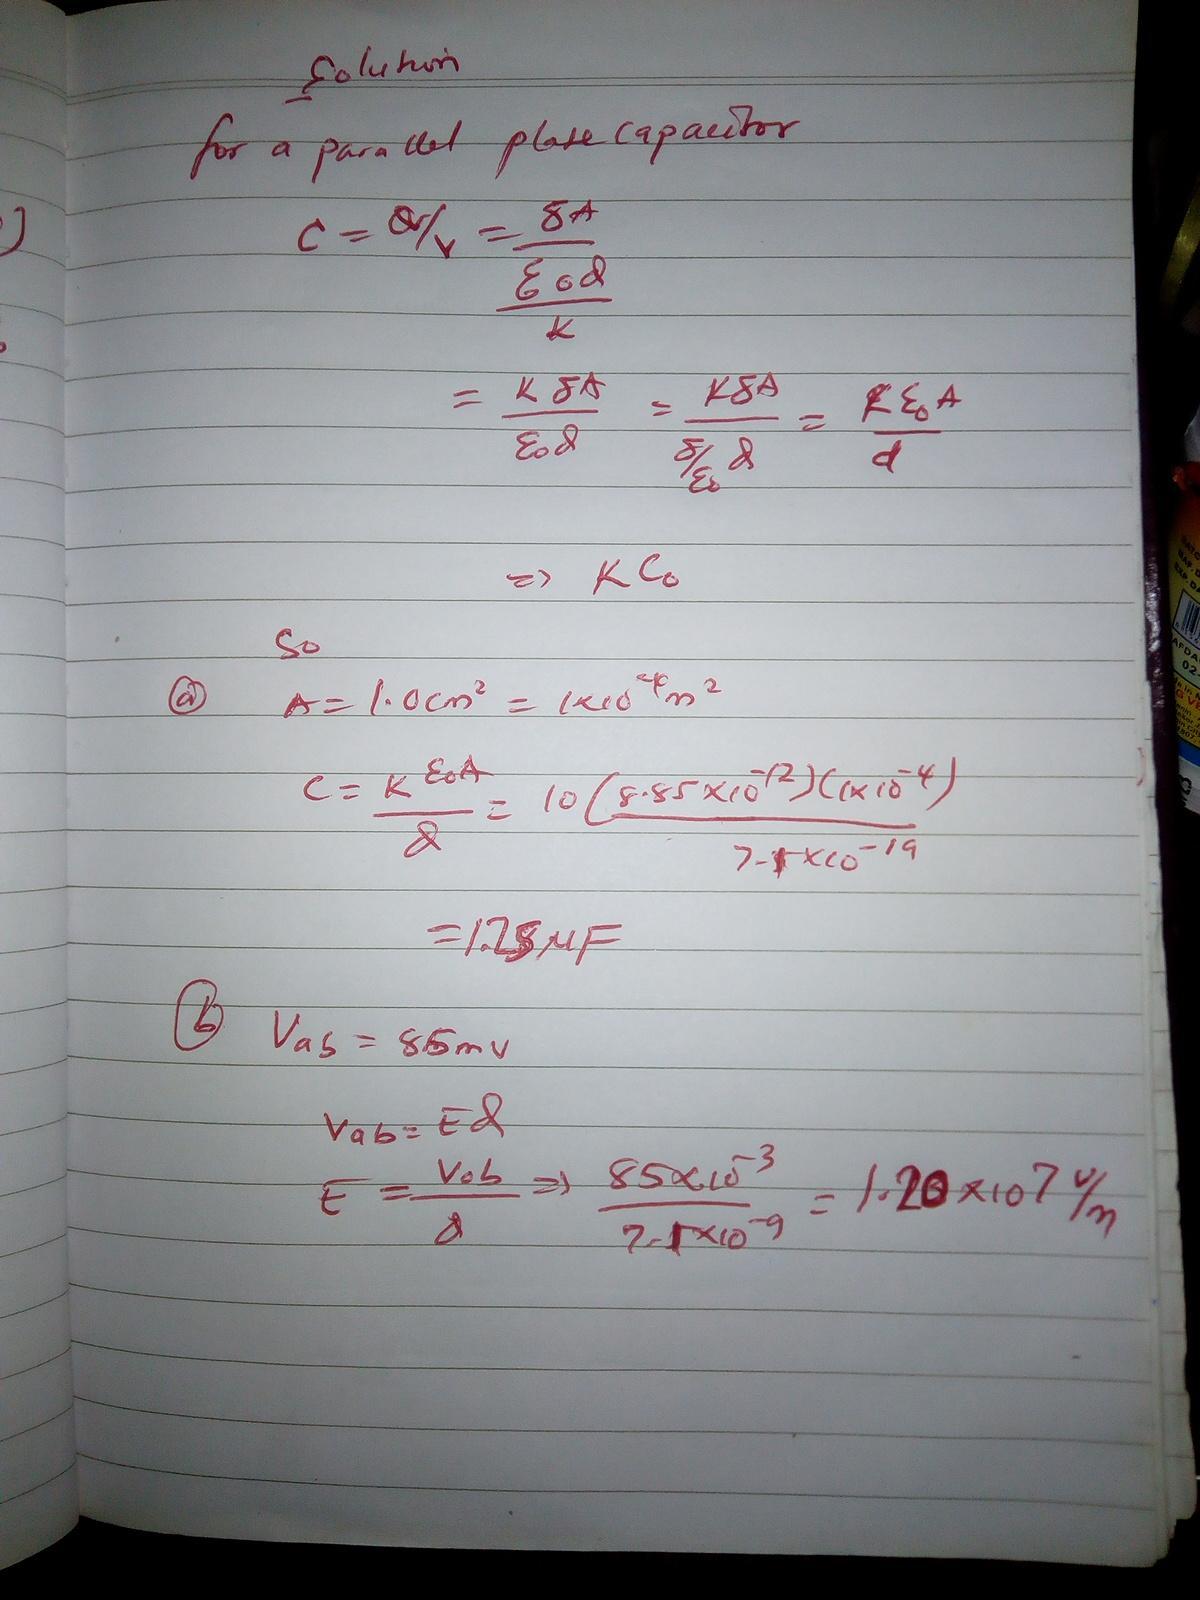 Solution
for a parallel plate capacitor
C = Q/V = δA / (ε₀d / K)
= KδA / ε₀d = KδA / (δ/ε₀ d) = Kε₀A / d
=> KC₀
So
ⓐ A = 1.0cm² = 1x10⁻⁴m²
C = K ε₀A / d = 10 (8.85x10⁻¹²)(1x10⁻⁴) / 7.1x10⁻¹⁹
= 1.25μF
ⓑ Vab = 85mV
Vab = Ed
E = Vab / d => 85x10⁻³ / 7.1x10⁻⁹ = 1.20x10⁷ V/m
02-